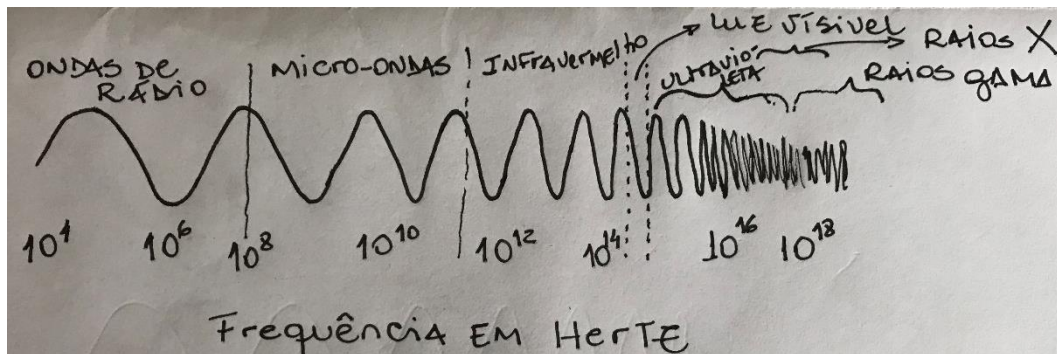 LUZ VÍSIVEL
ONDAS DE RÁDIO
MICRO-ONDAS
INFRAVERMELHO
ULTRAVIOLETA
RAIOS X
RAIOS GAMA
10⁴ 10⁶ 10⁸ 10¹⁰ 10¹² 10¹⁴ 10¹⁶ 10¹⁸
Frequência EM HERTZ